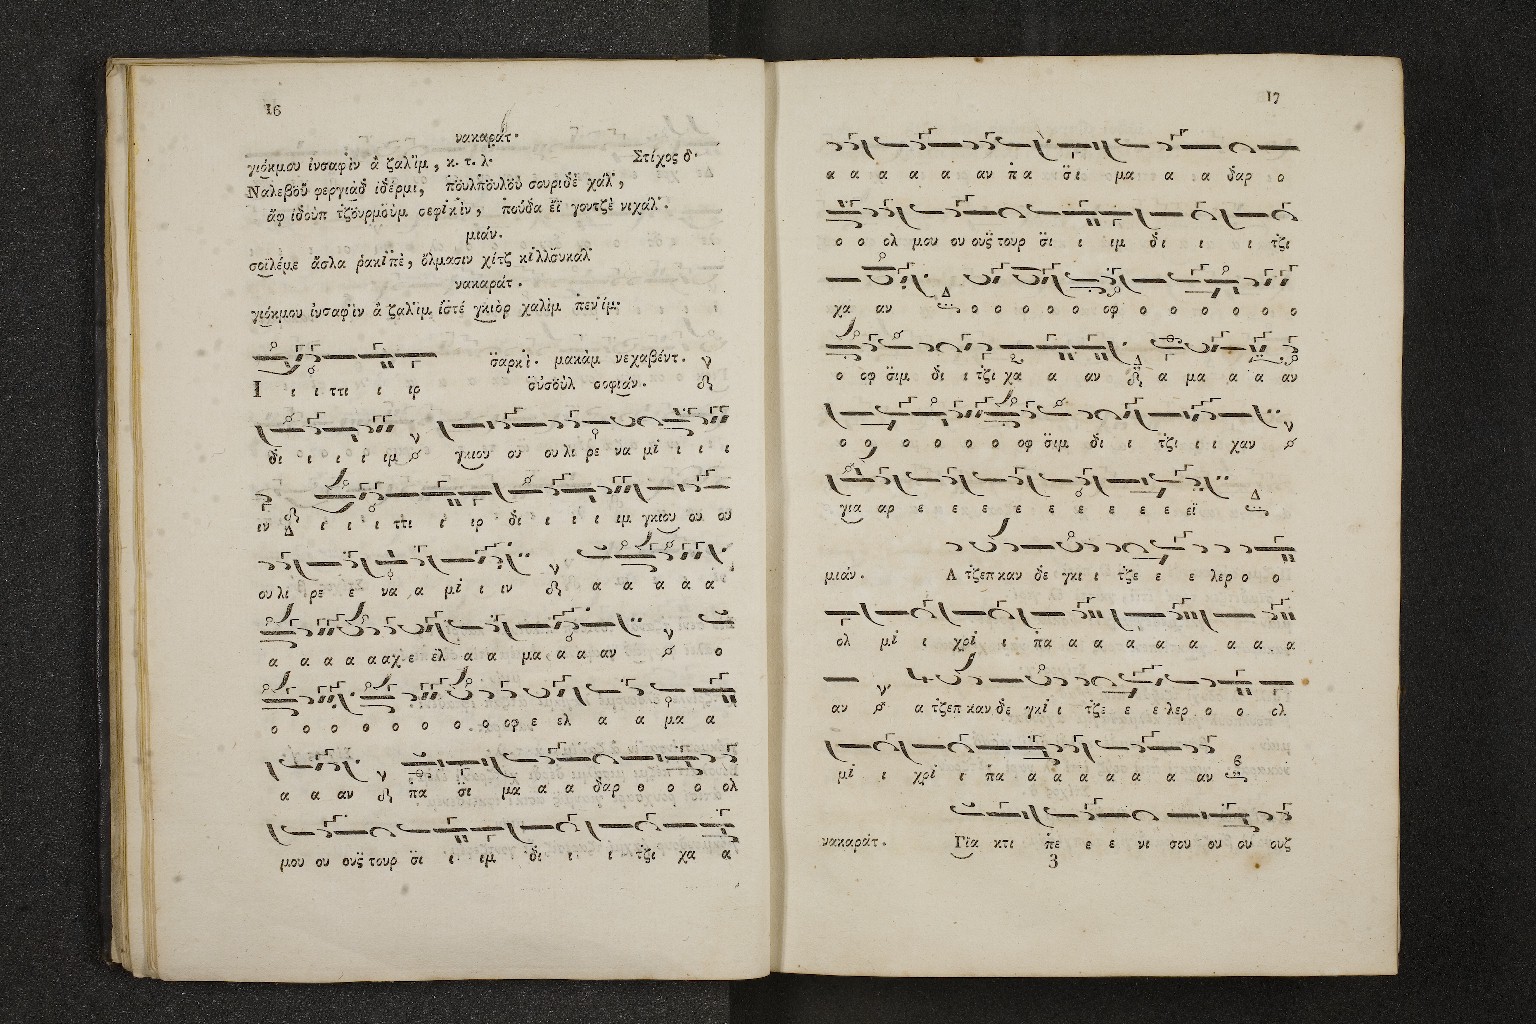 16
νακαράτ·
γιόκμου ἰνσαφὶν ἀ ζαλὶμ, κ. τ. λ· Στίχος δ·
Ναλεβοῦ φεργιὰδ ἰδέρμι, πουλπουλοὺ σουριδὲ χάλ,
ἂφ ἰδοὺπ τζουρμοὺμ σεφικὶν, ποὺδα εἲ γουτζὲ νιχάλ.
μιάν.
σοϊλέμε ἄσλα ῥακιπὲ, ὄλμασιν χίτζ κιλλοῦκαλ
νακαράτ.
γιόκμου ἰνσαφὶν ἀ ζαλὶμ ἰστέ γκιὸρ χαλὶμ πενὶμ·
σαρκὶ. μακὰμ νεχαβέντ. ν
Ι ι ι τι ι ιρ οὐσοὺλ σοφιάν.
δι ι ι ι ιμ γκιου ου ου λι ρε να μι ι ι ι
ιν Δ ι ι ι τι ι ιρ δι ι ι ι ιμ γκιου ου ου
ου λι ρε ε να α μι ι ιν α α α α α
α α α α αχ ε ελ α α μα α α αν ο
ο ο ο ο ο ο ο ο οφ ε ελ α α μα α
α α αν πα σι μα α α δαρ ο ο ο ολ
μου ου ους τουρ σι ι ιμ δι ι ι τζι χα α
17
α α α α α αν πα σι μα α α δαρ ο
ο ο ολ μου ου ους τουρ σι ι ιμ δι ι ι τζι
χα αν Δ ο ο ο ο ο οφ ο ο ο ο ο ο
ο οφ σιμ δι ι τζι χα α αν α μα α α αν
ο ο ο ο ο ο οφ σιμ δι ι τζι ι ι χαν
για αρ ε ε ε ε ε ε ε ε ε εϊ Δ
μιάν. Α τζεπ καν δε γκι ι τζε ε ε λερ ο ο
ολ μι ι χρι ι πα α α α α α α α α
αν α τζεπ καν δε γκι ι τζε ε ε λερ ο ο ολ
μι ι χρι ι πα α α α α α α αν β
νακαράτ. Για κτι πε ε ε νι σου ου ου ουζ
3